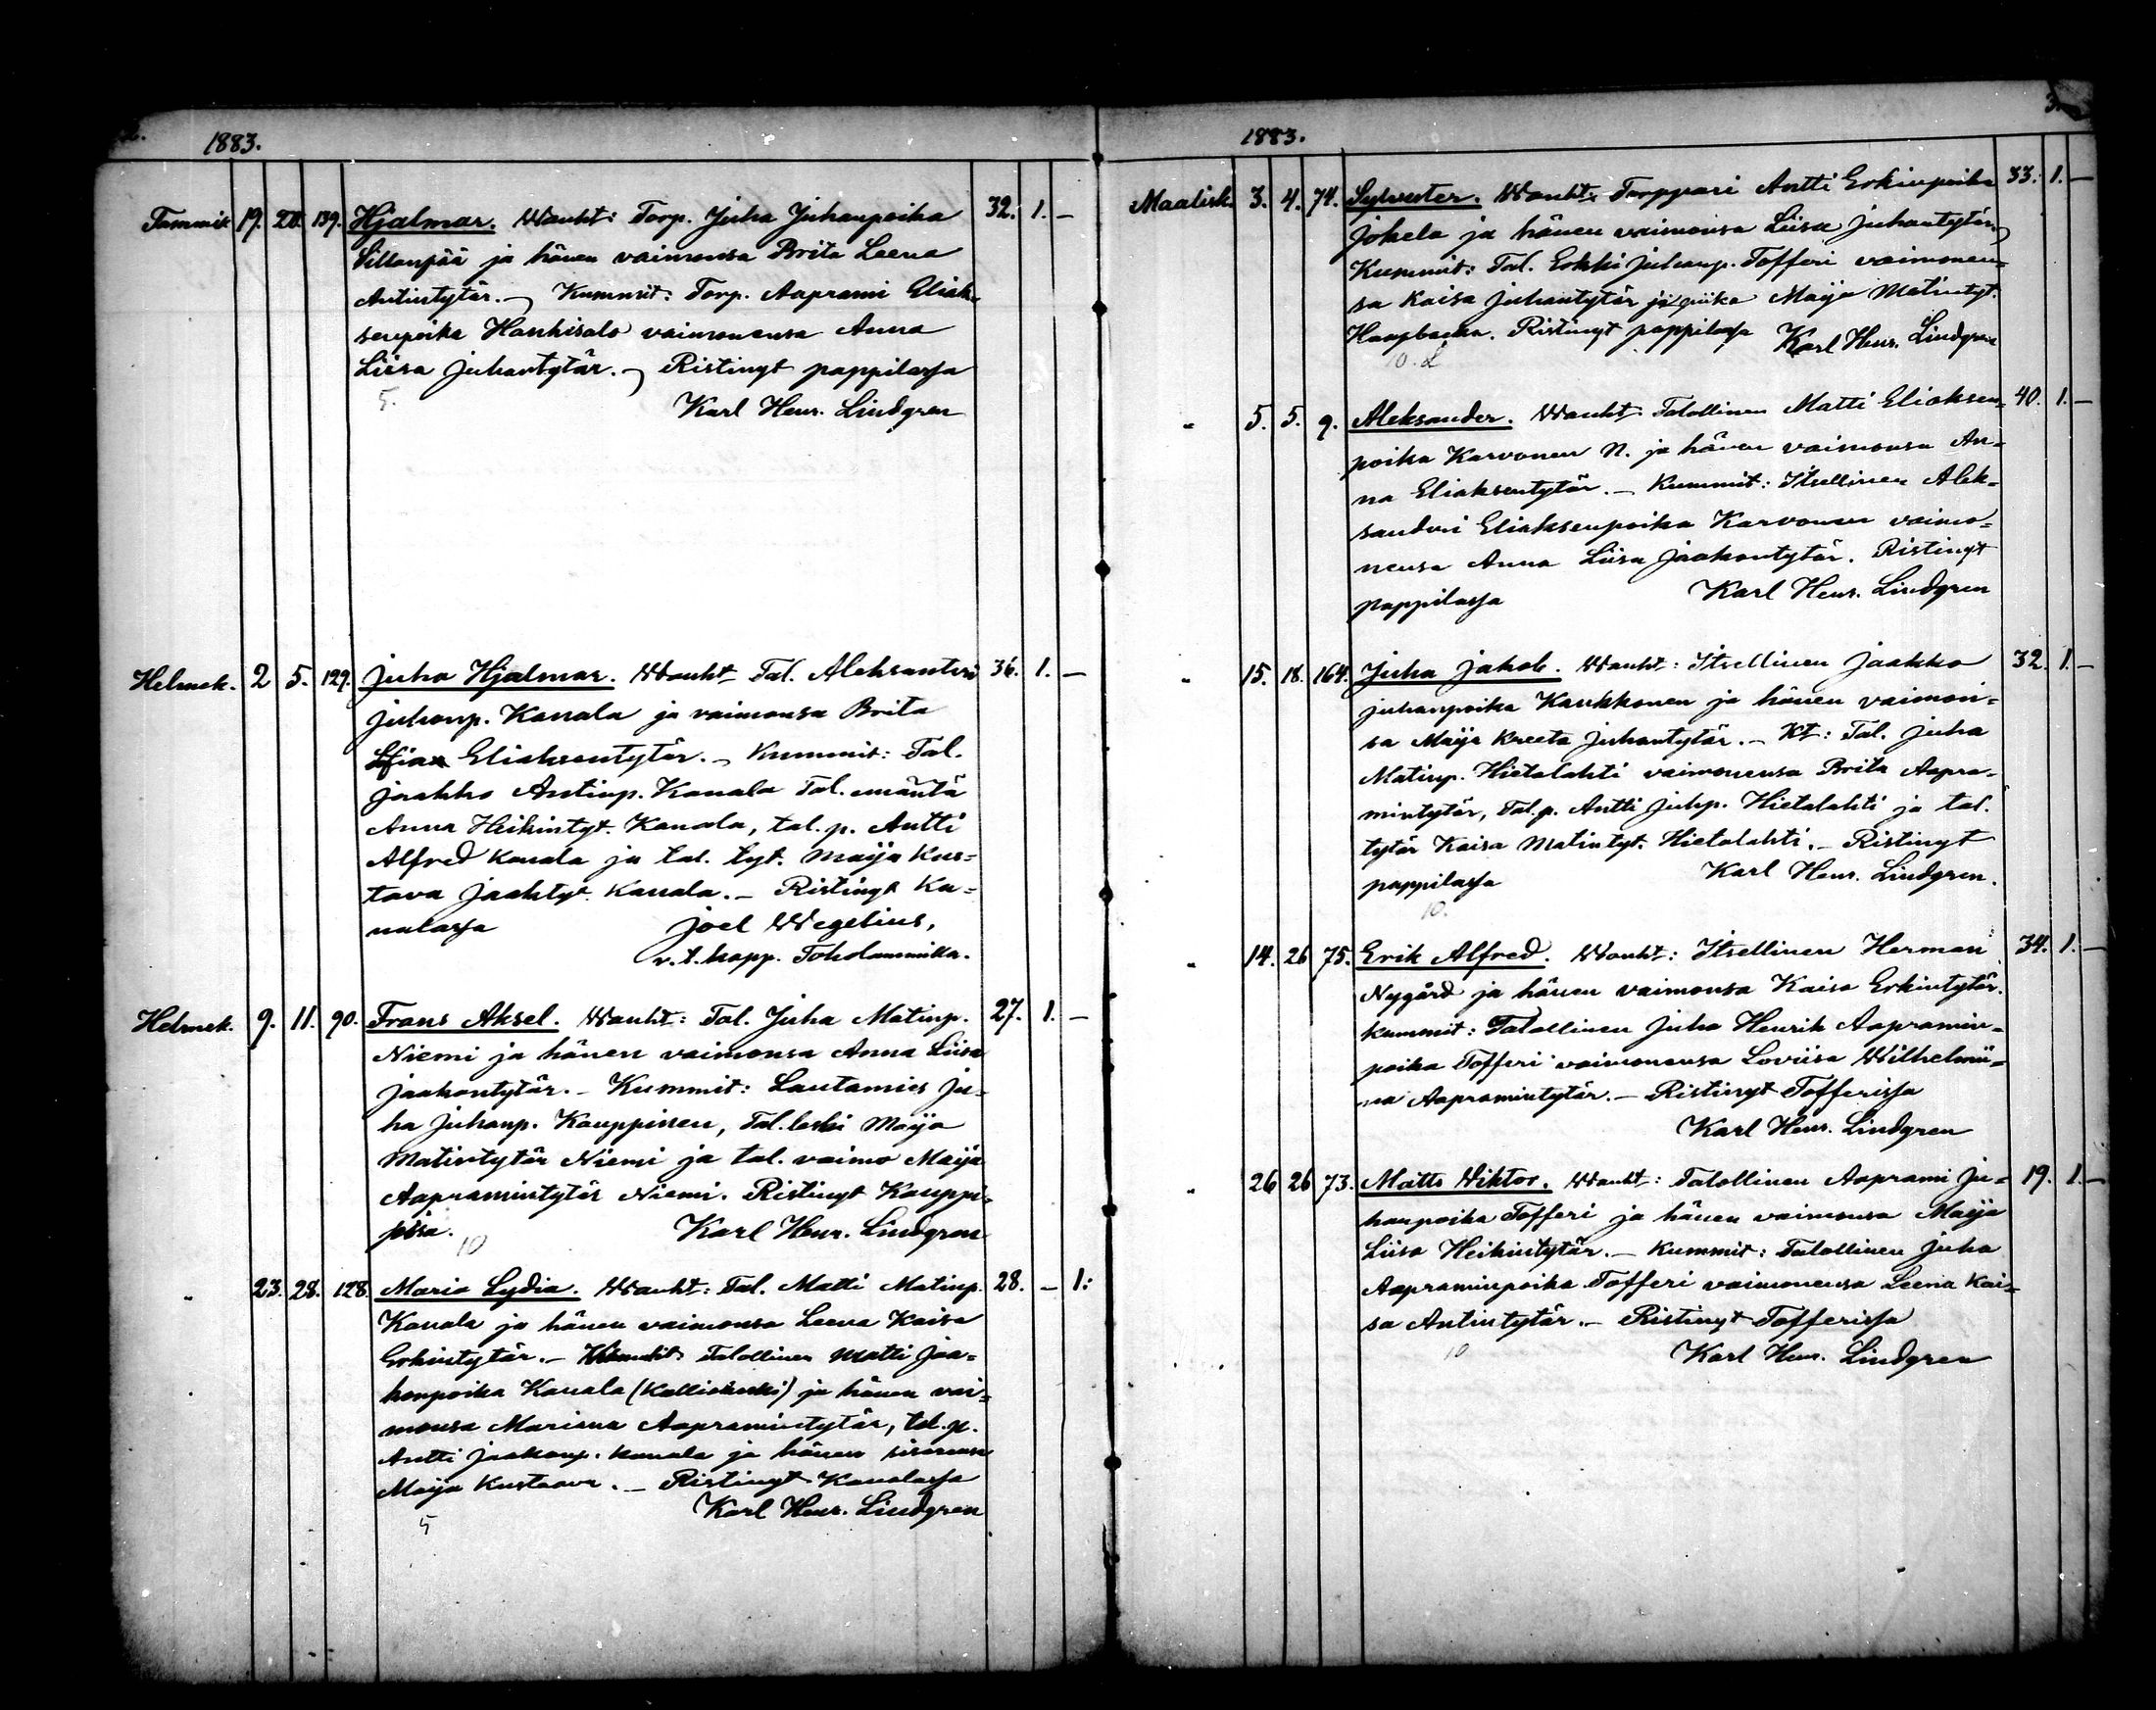 2.
1883.
Tammik 19. 20. 139. Hjalmar. Wanht: Torp. Juha Juhanpoika 32. 1. –
Sillanpää ja hänen vaimonsa Brita Leena
Antintytär. – Kummit: Torp. Aaprami Eliak-
senpoika Hankisalo vaimonensa Anna
Liisa Juhantytär. – Ristinyt pappilassa
5. Karl Henr. Lindgren
Helmek. 2 5. 129. Juho Hjalmar. Wanht Tal. Aleksanteri 36. 1. –
Juhanp. Kanala ja vaimonsa Brita
Eliaksentytär. – Kummit: Tal.
Jaakko Antinp. Kanala Tal. emäntä
Anna Heikintyt. Kanala, tal. p. Antti
Alfred Kanala ja tal. tyt. Maija Kus=
tava Jaaktyt. Kanala. – Ristinyt Ka=
nalassa Joel Wegelius,
v. t. kapp. Toholammilla.
Helmek. 9. 11. 90. Frans Aksel. Wanht: Tal. Juha Matinp. 27. 1. –
Niemi ja hänen vaimonsa Anna Liisa
Jaakontytär. – Kummit: Lautamies Ju=
ha Juhanp. Kauppinen, Tal. leski Maija
Matintytär Niemi ja tal. vaimo Maija
Aapramintytär Niemi. Ristinyt Kauppi=
10 Karl Henr. Lindgren
" 23. 28. 128. Maria Lydia. Wanht: Tal. Matti Matinp. 28. – 1:
Kanala ja hänen vaimonsa Leena Kaisa
Erkintytär. – Talollinen Matti Jaa=
konpoika Kanala ja hänen vai=
monsa Mariana Aapramintytär, tal. p.
Antti Jaakonp. Kanala ja hänen sisarensa
Maija Kustaava. – Ristinyt Kanalassa
5 Karl Henr. Lindgren
3.
1883.
Maalisk. 3. 4. 74. Sylvester. Wanht: Torppari Antti Erkinpoika 33. 1. –
Jokela ja hänen vaimonsa Liisa Juhantytär
Kummit: Tal. Erkki Juhanp. Tofferi vaimonen=
sa Kaisa Juhantytär ja piika Maija Matintyt.
Ristinyt pappilassa Karl Henr. Lindgren
10.
" 5. 5. 9. Aleksander. Wanht. Talollinen Matti Eliaksen= 40. 1. –
poika Karvonen N. ja hänen vaimonsa An=
na Eliaksentytär. – Kummit: Itsellinen Alek=
santeri Eliaksenpoika Karvonen vaimo=
nensa Anna Liisa Jaakontytär. Ristinyt
pappilassa Karl Henr. Lindgren
" 15. 18. 164. Juha Jakob. Wanht: Itsellinen Jaakko 32. 1. –
Juhanpoika Kaukkonen ja hänen vaimon=
sa Maija Kreeta Juhantytär. – Kt: Tal. Juha
Matinp. Hietalahti vaimonensa Brita Aapra=
mintytär, Tal. p. Antti Juhp. Hietalahti ja tal.
tytär Kaisa Matintyt. Hietalahti. – Ristinyt
pappilassa Karl Henr. Lindgren.
10.
" 14. 26 75. Erik Alfred. Wanht: Itsellinen Herman 34. 1. –
Nygård ja hänen vaimonsa Kaisa Erkintytär.
Kummit: Talollinen Juho Henrik Aapramin=
poika Tofferi vaimonensa Loviisa Wilhelmii=
na Aapramintytär. – Ristinyt Tofferissa
Karl Henr. Lindgren
" 26 26 73. Matts Viktor. Wanht: Talollinen Aaprami Ju= 19. 1. –
hanpoika Tofferi ja hänen vaimonsa Maija
Liisa Heikintytär. – Kummit: Talollinen Juho
Aapraminpoika Tofferi vaimonensa Leena Kai=
sa Antintytär. – Ristinyt Tofferissa
10 Karl Henr. Lindgren